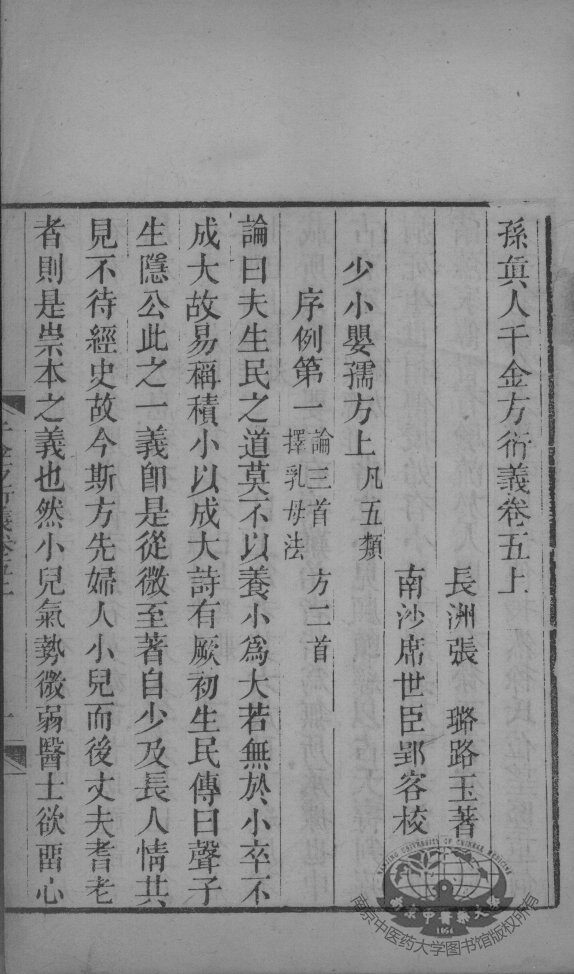 孫眞人千金方衍義卷五上
長洲張　璐路玉著
南沙席世臣郢客校
少小嬰孺方上　凡五類
序例第一　論三首　方二首
擇乳母法
論曰夫生民之道莫不以養小爲大若無於小卒不
成大故易稱積小以成大詩有厥初生民傳曰聲子
生隱公此之一義卽是從微至著自少及長人情共
見不待經史故今斯方先婦人小兒而後丈夫耆老
者則是崇本之義也然小兒氣勢微弱醫士欲畱心
千金方衍義卷五上
一
NANJING UNIVERSITY OF CHINESE MEDICINE
南京中醫藥大學
1954
南京中医药大学图书馆版权所有